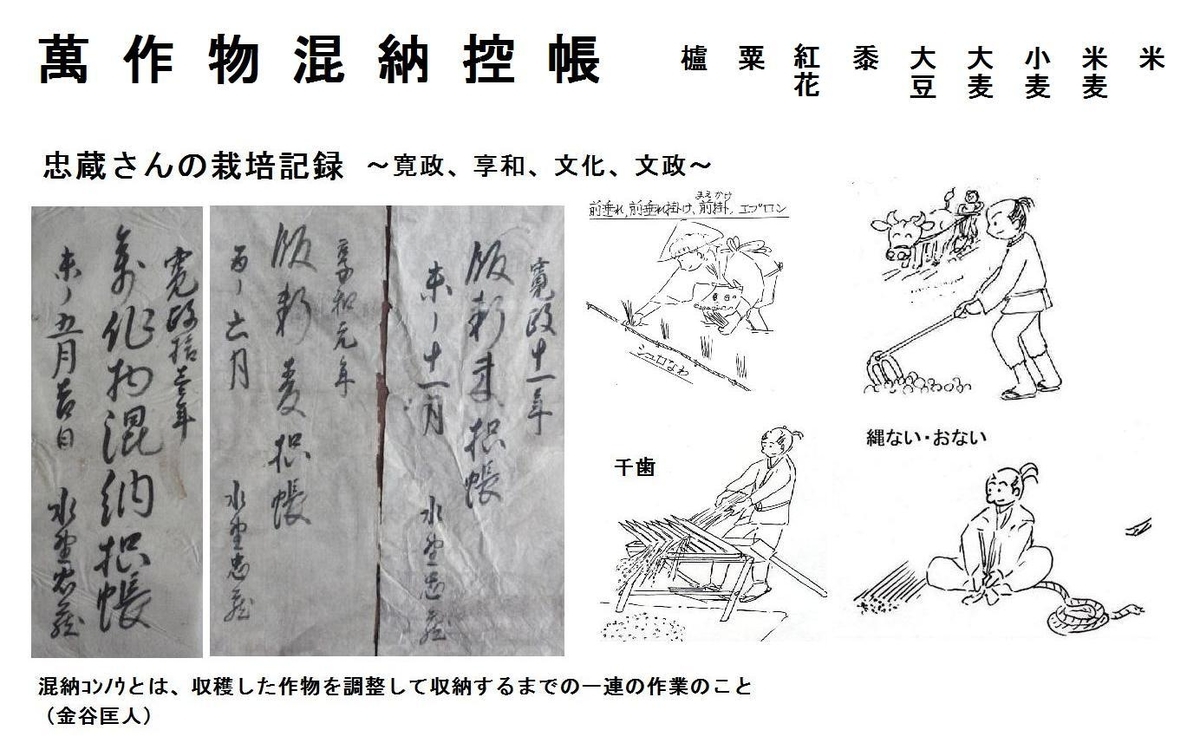 萬作物混納控帳
櫨 粟 紅花 黍 大豆 大麦 小麦 米麦 米
忠蔵さんの栽培記録 ～寛政、享和、文化、文政～
寛政拾壱年
萬作物混納扣帳
未ノ五月吉日
水堂忠蔵
享和元年
飯料麦扣帳
水堂忠蔵
寛政十一年
飯料米扣帳
未ノ十一月
水堂忠蔵
まえかけ
前垂れ,前垂れ掛け、前掛、エプロン
シュロなわ
千歯
縄ない・おない
混納ｺﾝﾉｳとは、収穫した作物を調整して収納するまでの一連の作業のこと
（金谷匡人）